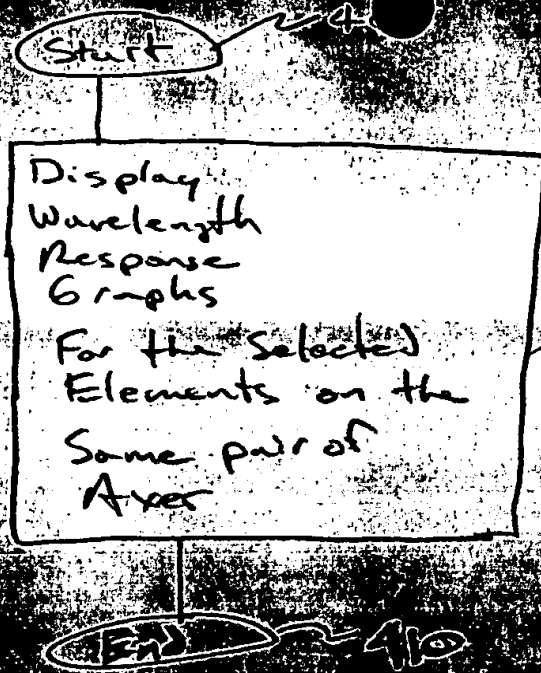 Start
4
Display
Wavelength
Response
Graphs
For the Selected
Elements on the
Same pair of
Axes
End
410